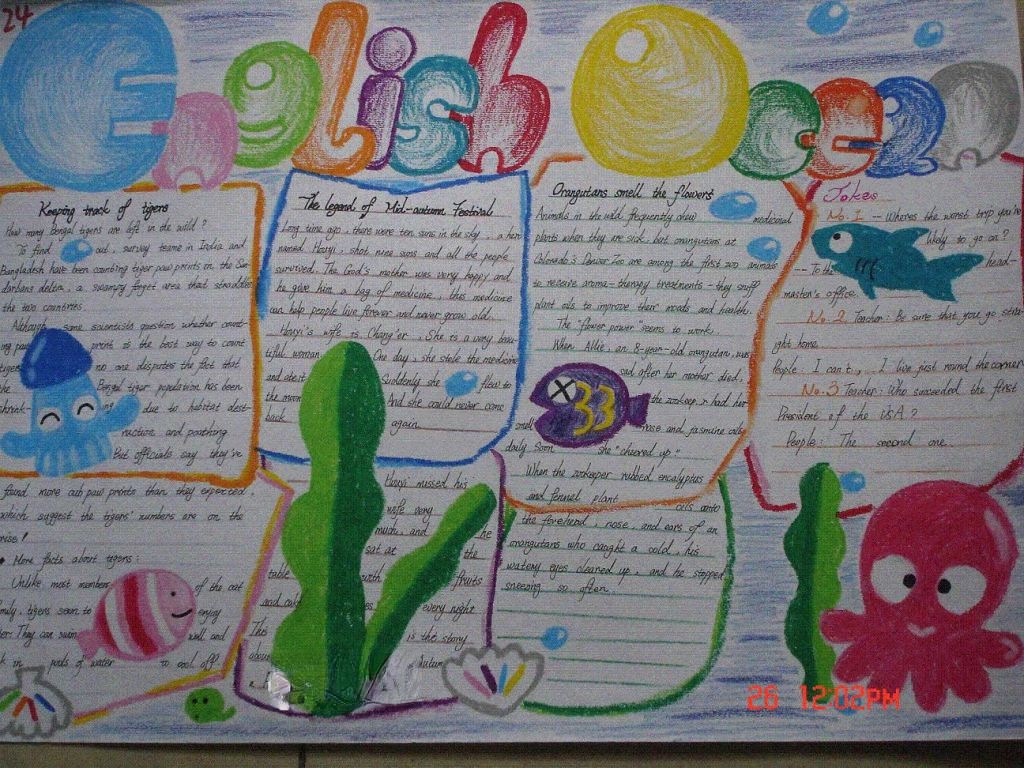 24
English Ocean
Keeping track of tigers
How many Bengal tigers are left in the wild?
To find out, survey teams in India and
Bangladesh have been counting tiger paw prints in the Sun-
darbans delta, a swampy forest area that straddles
the two countries.
Although some scientists question whether count-
ing paw print is the best way to count
tigers no one disputes the fact that
the Bengal tiger population has been
shrink- due to habitat dest-
ruction and poathing
But officials say they've
found more cub paw prints than they expected,
which suggest the tigers' numbers are on the
rise!
• More facts about tigers:
Unlike most members of the cat
family, tigers seem to enjoy
They can swim well and
in pools of water to cool off?
The legend of Mid-autumn Festival
Long time ago, there were ten suns in the sky, a hero
named Houyi, shot nine suns and all the people
survived. The God's mother was very happy and
he give him a bag of medicine, this medicine
can help people live forever and never grow old.
Houyi's wife is Chang'er, She is a very beau-
tiful woman. One day, she stole the medicine
and ate it Suddenly she flew to
the moon And she could never come
back again.
Houyi missed his
wife very
much, and he
sat at the
table with fruits
and cakes, every night
This is the story
about Autumn
Orangutans smell the flowers
Animals in the wild frequently chew medicinal
plants when they are sick, but orangutans at
Colorado's Denver Zoo are among the first zoo animals
to receive aroma-therapy treatments - they sniff
plant oils to improve their moods and health.
The "flower power" seems to work.
When Allie, an 8-year-old orangutan, was
sad after her mother died,
the zookeeper had her
smell rose and jasmine oils
daily. Soon she "cheered up".
When the zookeeper rubbed eucalyptus
and fennel plant oils onto
the forehead, nose, and ears of an
orangutans who caught a cold, his
watery eyes cleared up, and he stopped
sneezing so often.
Jokes
No. 1 - Where's the worst trip you're
likely to go on?
-- To the head-
master's office.
No. 2 Teacher: Be sure that you go strai-
ght home.
People: I can't, ... I live just round the corner
No. 3 Teacher: Who succeeded the first
President of the USA?
People: The second one.
26 12:02PM